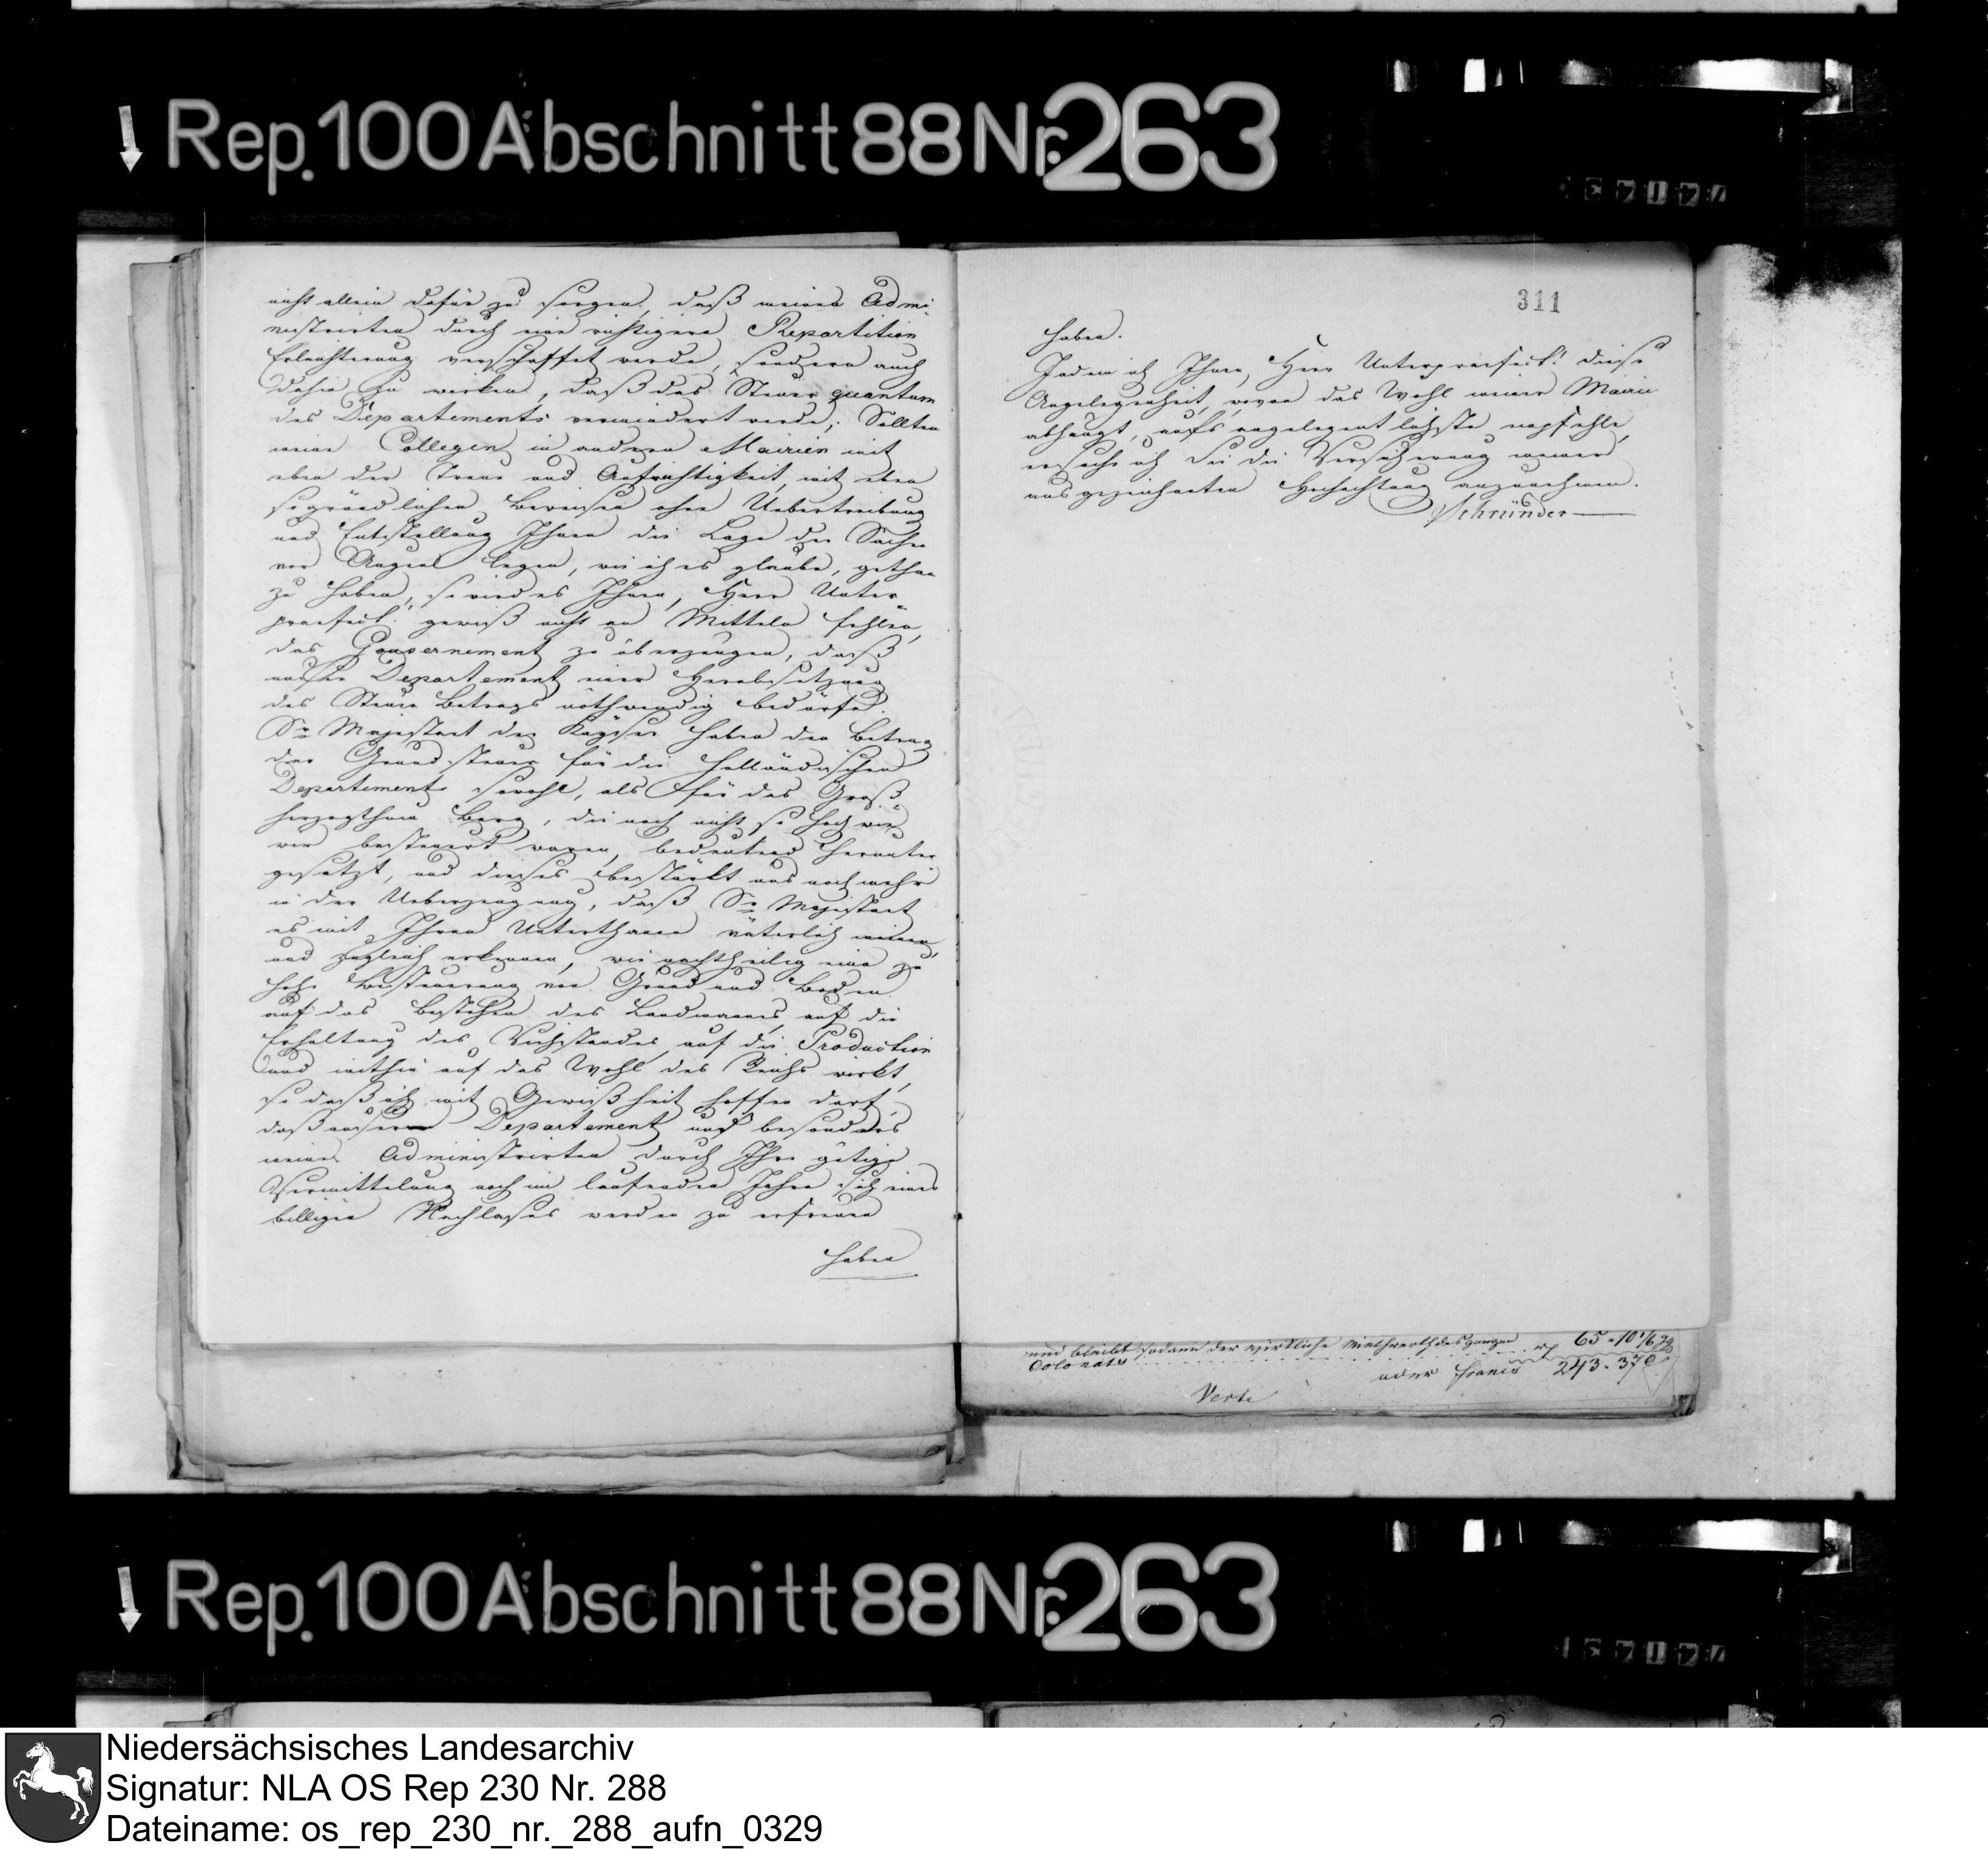 Rep. 100 Abschnitt 88 Nr. 263
nicht allein dafür zu sorgen, daß meinen Admi-
nistrirten durch eine richtigere Repartition
Erleichterung verschaffet werde, sondern auch
dahin zu wirken, daß das Steuer quantum
des Departements vermindert werde; Sollten
meine Collegen in andern Mairien mit
eben der Treue und Aufrichtigkeit, mit eben
so gründlichen Beweisen ohne Uebertreibung
und Entstellung Ihnen die Lage der Sache
vor Augen legen, wie ich es glaube, gethan
zu haben, so wird es Ihnen, Herr Unter
praefect! gewiß nicht an Mitteln fehlen,
das Gouvernement zu überzeugen, daß
unser Departement einer Herabsetzung
des Steuer Betrags nothwendig bedürfe.
Sr Majestaet der Kayser haben den Betrag
der Grundsteuer für die holländischen
Departements sowohl, als für das Groß
herzogthum Berg, die noch nicht so hoch wie
wir besteuert waren, bedeutend herunter
gesetzt, und dieses bestärkt uns noch mehr
in der Ueberzeugung, daß Sr Majestaet
es mit Ihren Unterthanen väterlich meinen,
und zugleich erkennen, wie nachtheilig eine zu
hohe Besteuerung von Grund und Boden
auf das Bestehen des Landmannes, auf die
Erhaltung des Viehstandes, auf die Production
und mithin auf das Wohl des Reichs wirkt,
so daß ich mit Gewißheit hoffen darf,
daß unserm Departement und besonders
meine Administrirten durch Ihre gütige
Vermittelung noch im laufenden Jahre sich eines
billigen Nachlaßes werden zu erfreuen
haben
311
haben.
Indem ich Ihnen, Herr Unterpraefect! diese
Angelegenheit, wovon das Wohl meiner Mairie
abhängt, aufs angelegentlichste empfehle,
ersuche ich Sie die Versicherung meiner
ausgezeichneten Hochachtung anzunehmen.
Schründer
und bleibt sodann der wirkliche Miethwerth des ganzen
Colonats 65 - 10 1/6
oder francs 243 - 37
Verte
Rep. 100 Abschnitt 88 Nr. 263
Niedersächsisches Landesarchiv
Signatur: NLA OS Rep 230 Nr. 288
Dateiname: os_rep_230_nr._288_aufn_0329